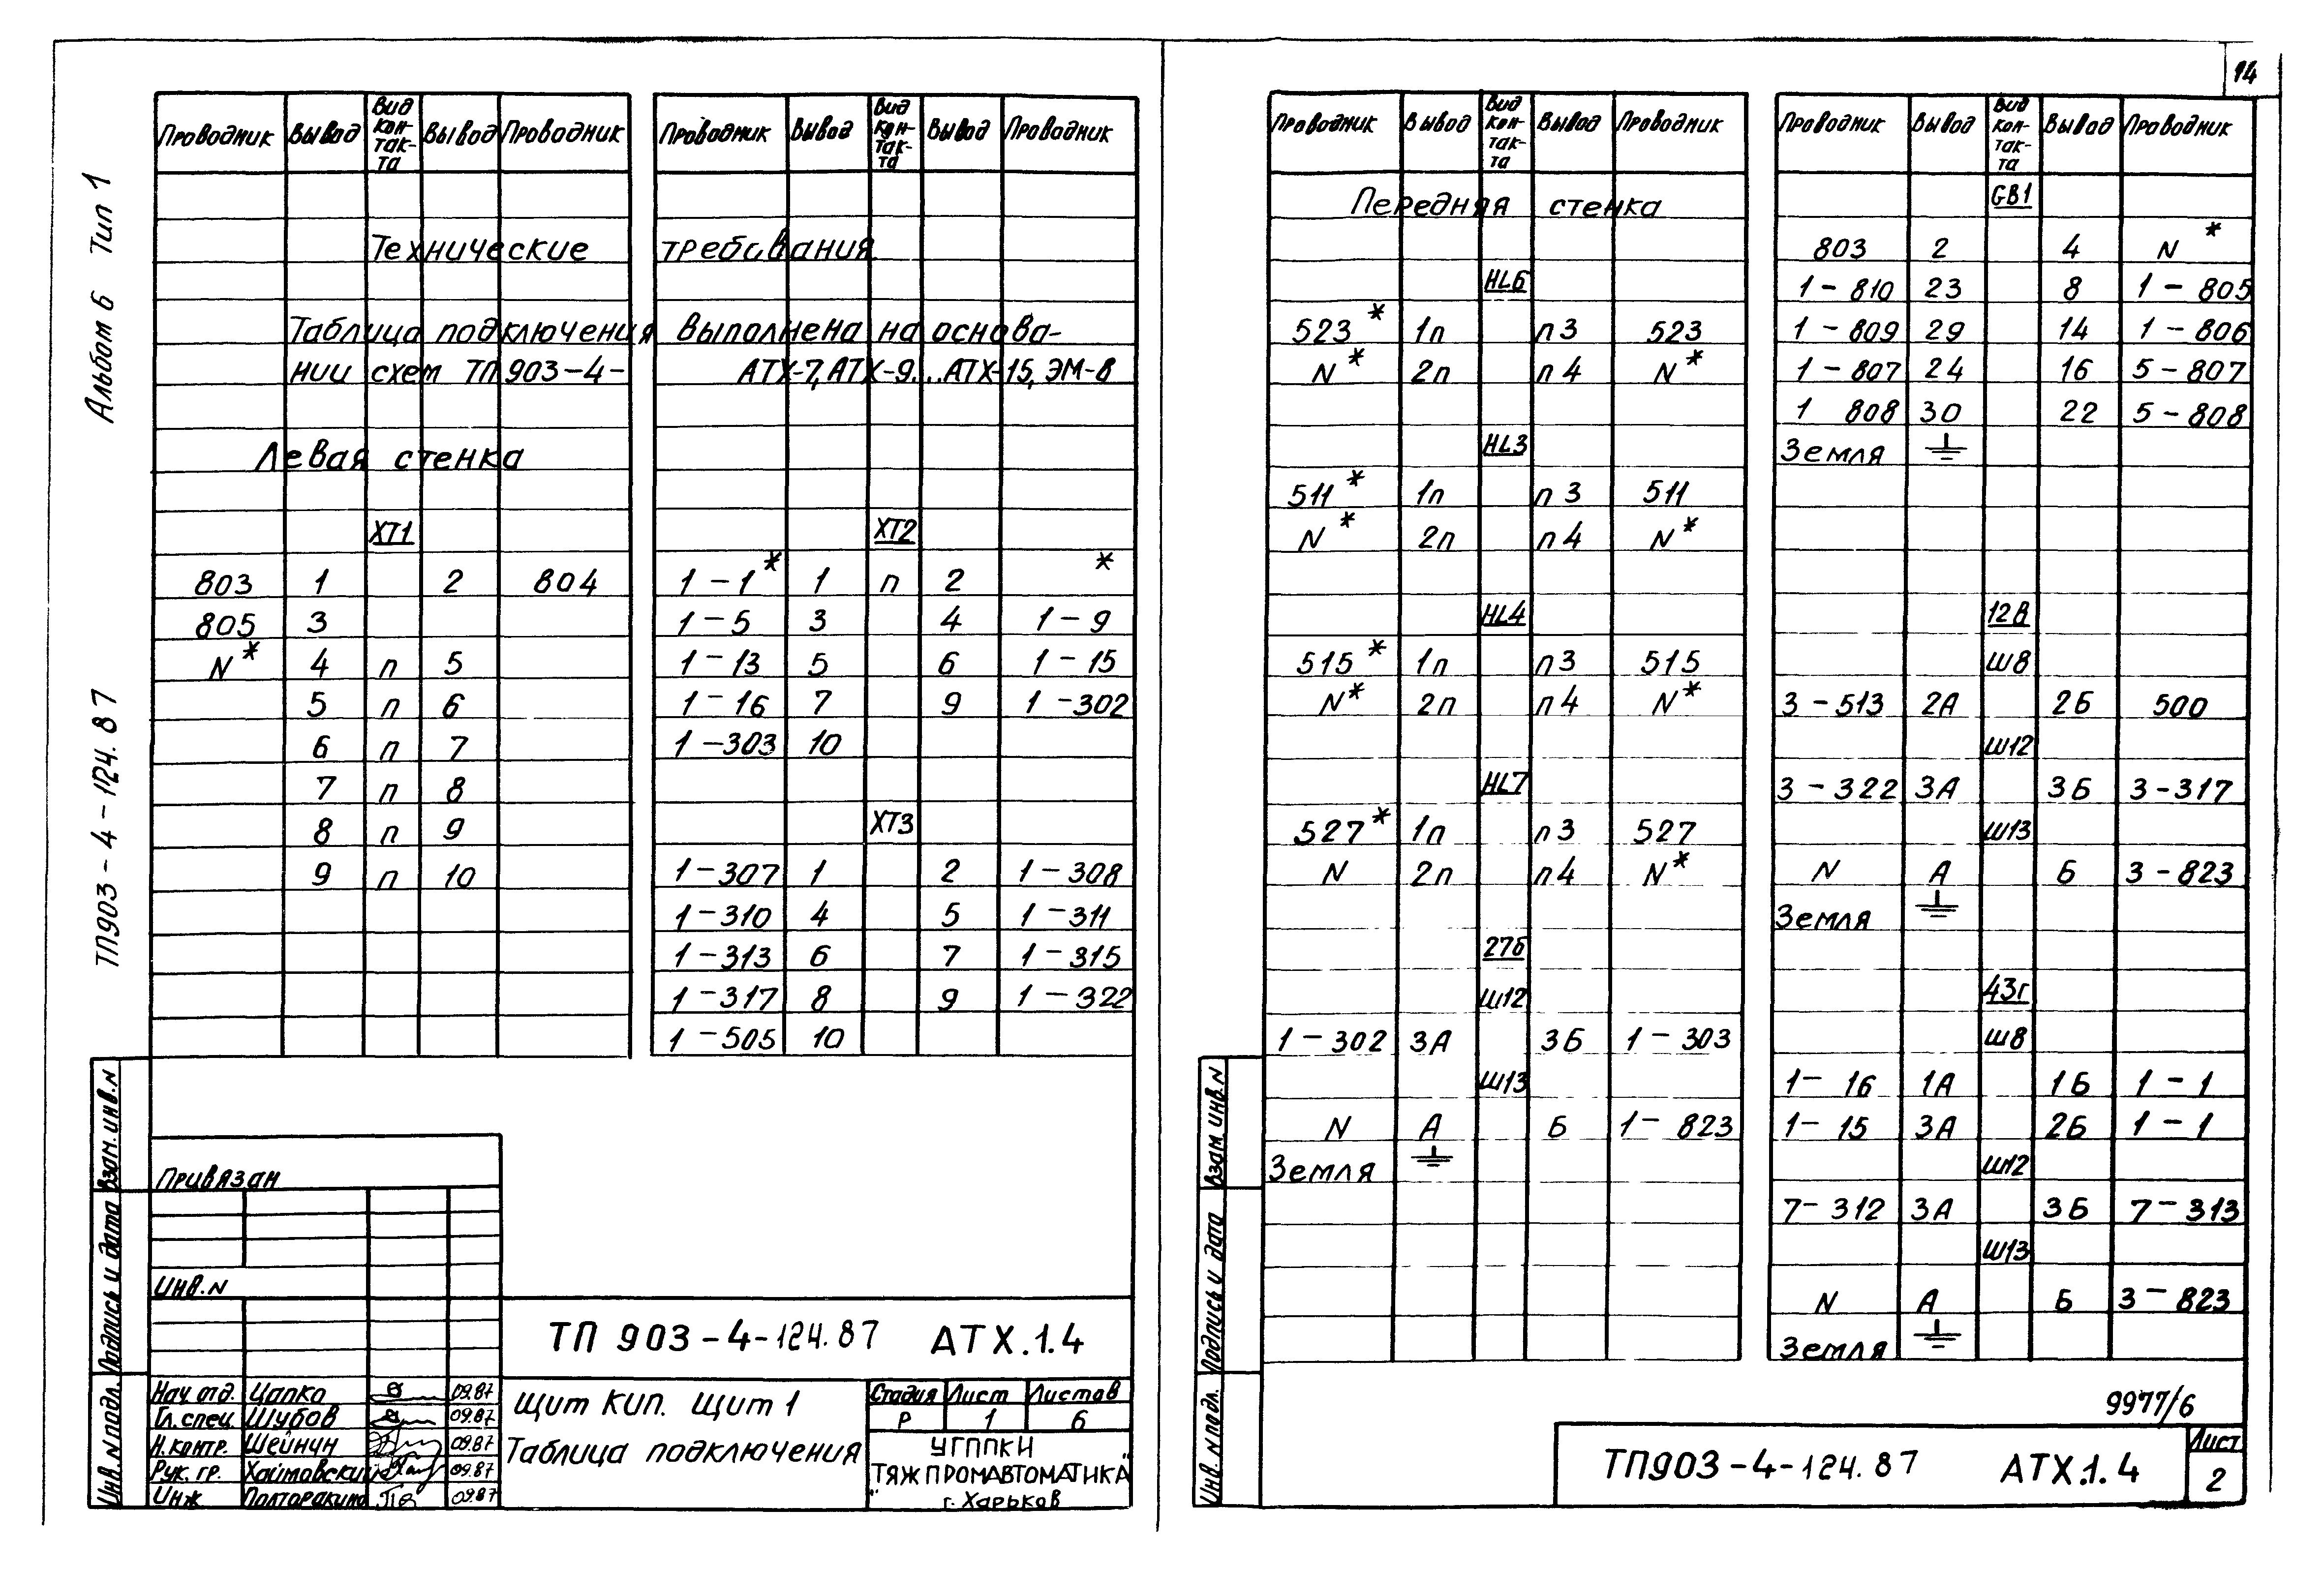 14
Альбом 6 Тип 1
ТП903-4-124.87
Проводник Вывод Вид контакта Вывод Проводник
Технические требования
Таблица подключения выполнена на основа-
нии схем ТП903-4- АТХ-7, АТХ-9...АТХ-15, ЭМ-8
Левая стенка
ХТ1
803 1 2 804
805 3
N* 4 п 5
5 п 6
6 п 7
7 п 8
8 п 9
9 п 10
Проводник Вывод Вид контакта Вывод Проводник
ХТ2
1-1* 1 п 2 *
1-5 3 4 1-9
1-13 5 6 1-15
1-16 7 9 1-302
1-303 10
ХТ3
1-307 1 2 1-308
1-310 4 5 1-311
1-313 6 7 1-315
1-317 8 9 1-322
1-505 10
Привязан
Инв.N
Взам.инв.N
Подпись и дата
Инв.N подл.
ТП 903-4-124.87 АТХ.1.4
Нач.отд. Цапко 09.87
Гл.спец Шубов 09.87
Н.контр. Шейнин 09.87
Рук.гр. Хаймовский 09.87
Инж 09.87
Щит КИП. Щит 1
Таблица подключения
Стадия Лист Листов
Р 1 6
УГППКИ
"ТЯЖПРОМАВТОМАТИКА"
г. Харьков
Проводник Вывод Вид контакта Вывод Проводник
Передняя стенка
HL6
523* 1п п3 523
N* 2п п4 N*
HL3
511* 1п п3 511
N* 2п п4 N*
HL4
515* 1п п3 515
N* 2п п4 N*
HL7
527* 1п п3 527
N 2п п4 N*
27б
Ш12
1-302 3А 3Б 1-303
Ш13
N А Б 1-823
Земля
Проводник Вывод Вид контакта Вывод Проводник
GB1
803 2 4 N*
1-810 23 8 1-805
1-809 29 14 1-806
1-807 24 16 5-807
1 808 30 22 5-808
Земля
12в
Ш8
3-513 2А 2Б 500
Ш12
3-322 3А 3Б 3-317
Ш13
N А Б 3-823
Земля
43г
Ш8
1-16 1А 1Б 1-1
1-15 3А 2Б 1-1
Ш12
7-312 3А 3Б 7-313
Ш13
N А Б 3-823
Земля
Взам инв.N
Подпись и дата
Инв. N подл.
9977/6
ТП903-4-124.87 АТХ.1.4
Лист
2